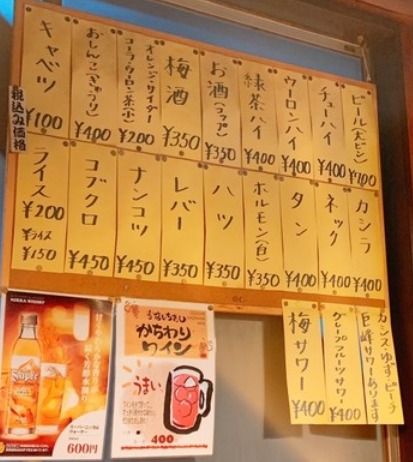 ビール(大ビン) ¥700
チューハイ ¥400
ウーロンハイ ¥400
緑茶ハイ ¥400
お酒(コップ) ¥350
梅酒 ¥350
オレンジ・サイダー
コーラ・ウーロン茶(小) ¥200
おしんこ(きゅうり) ¥400
キャベツ ¥100
税込み価格
カシラ ¥400
ネック ¥400
タン ¥400
ホルモン(白) ¥350
ハツ ¥350
レバー ¥350
ナンコツ ¥450
コブクロ ¥450
ライス ¥200
半ライス ¥150
カシス・ゆず・ピーチ
巨峰サワーあります
グレープフルーツサワー ¥400
梅サワー ¥400
NIKKA WHISKY
Super
600円
かちわり
ワイン
うまい
400